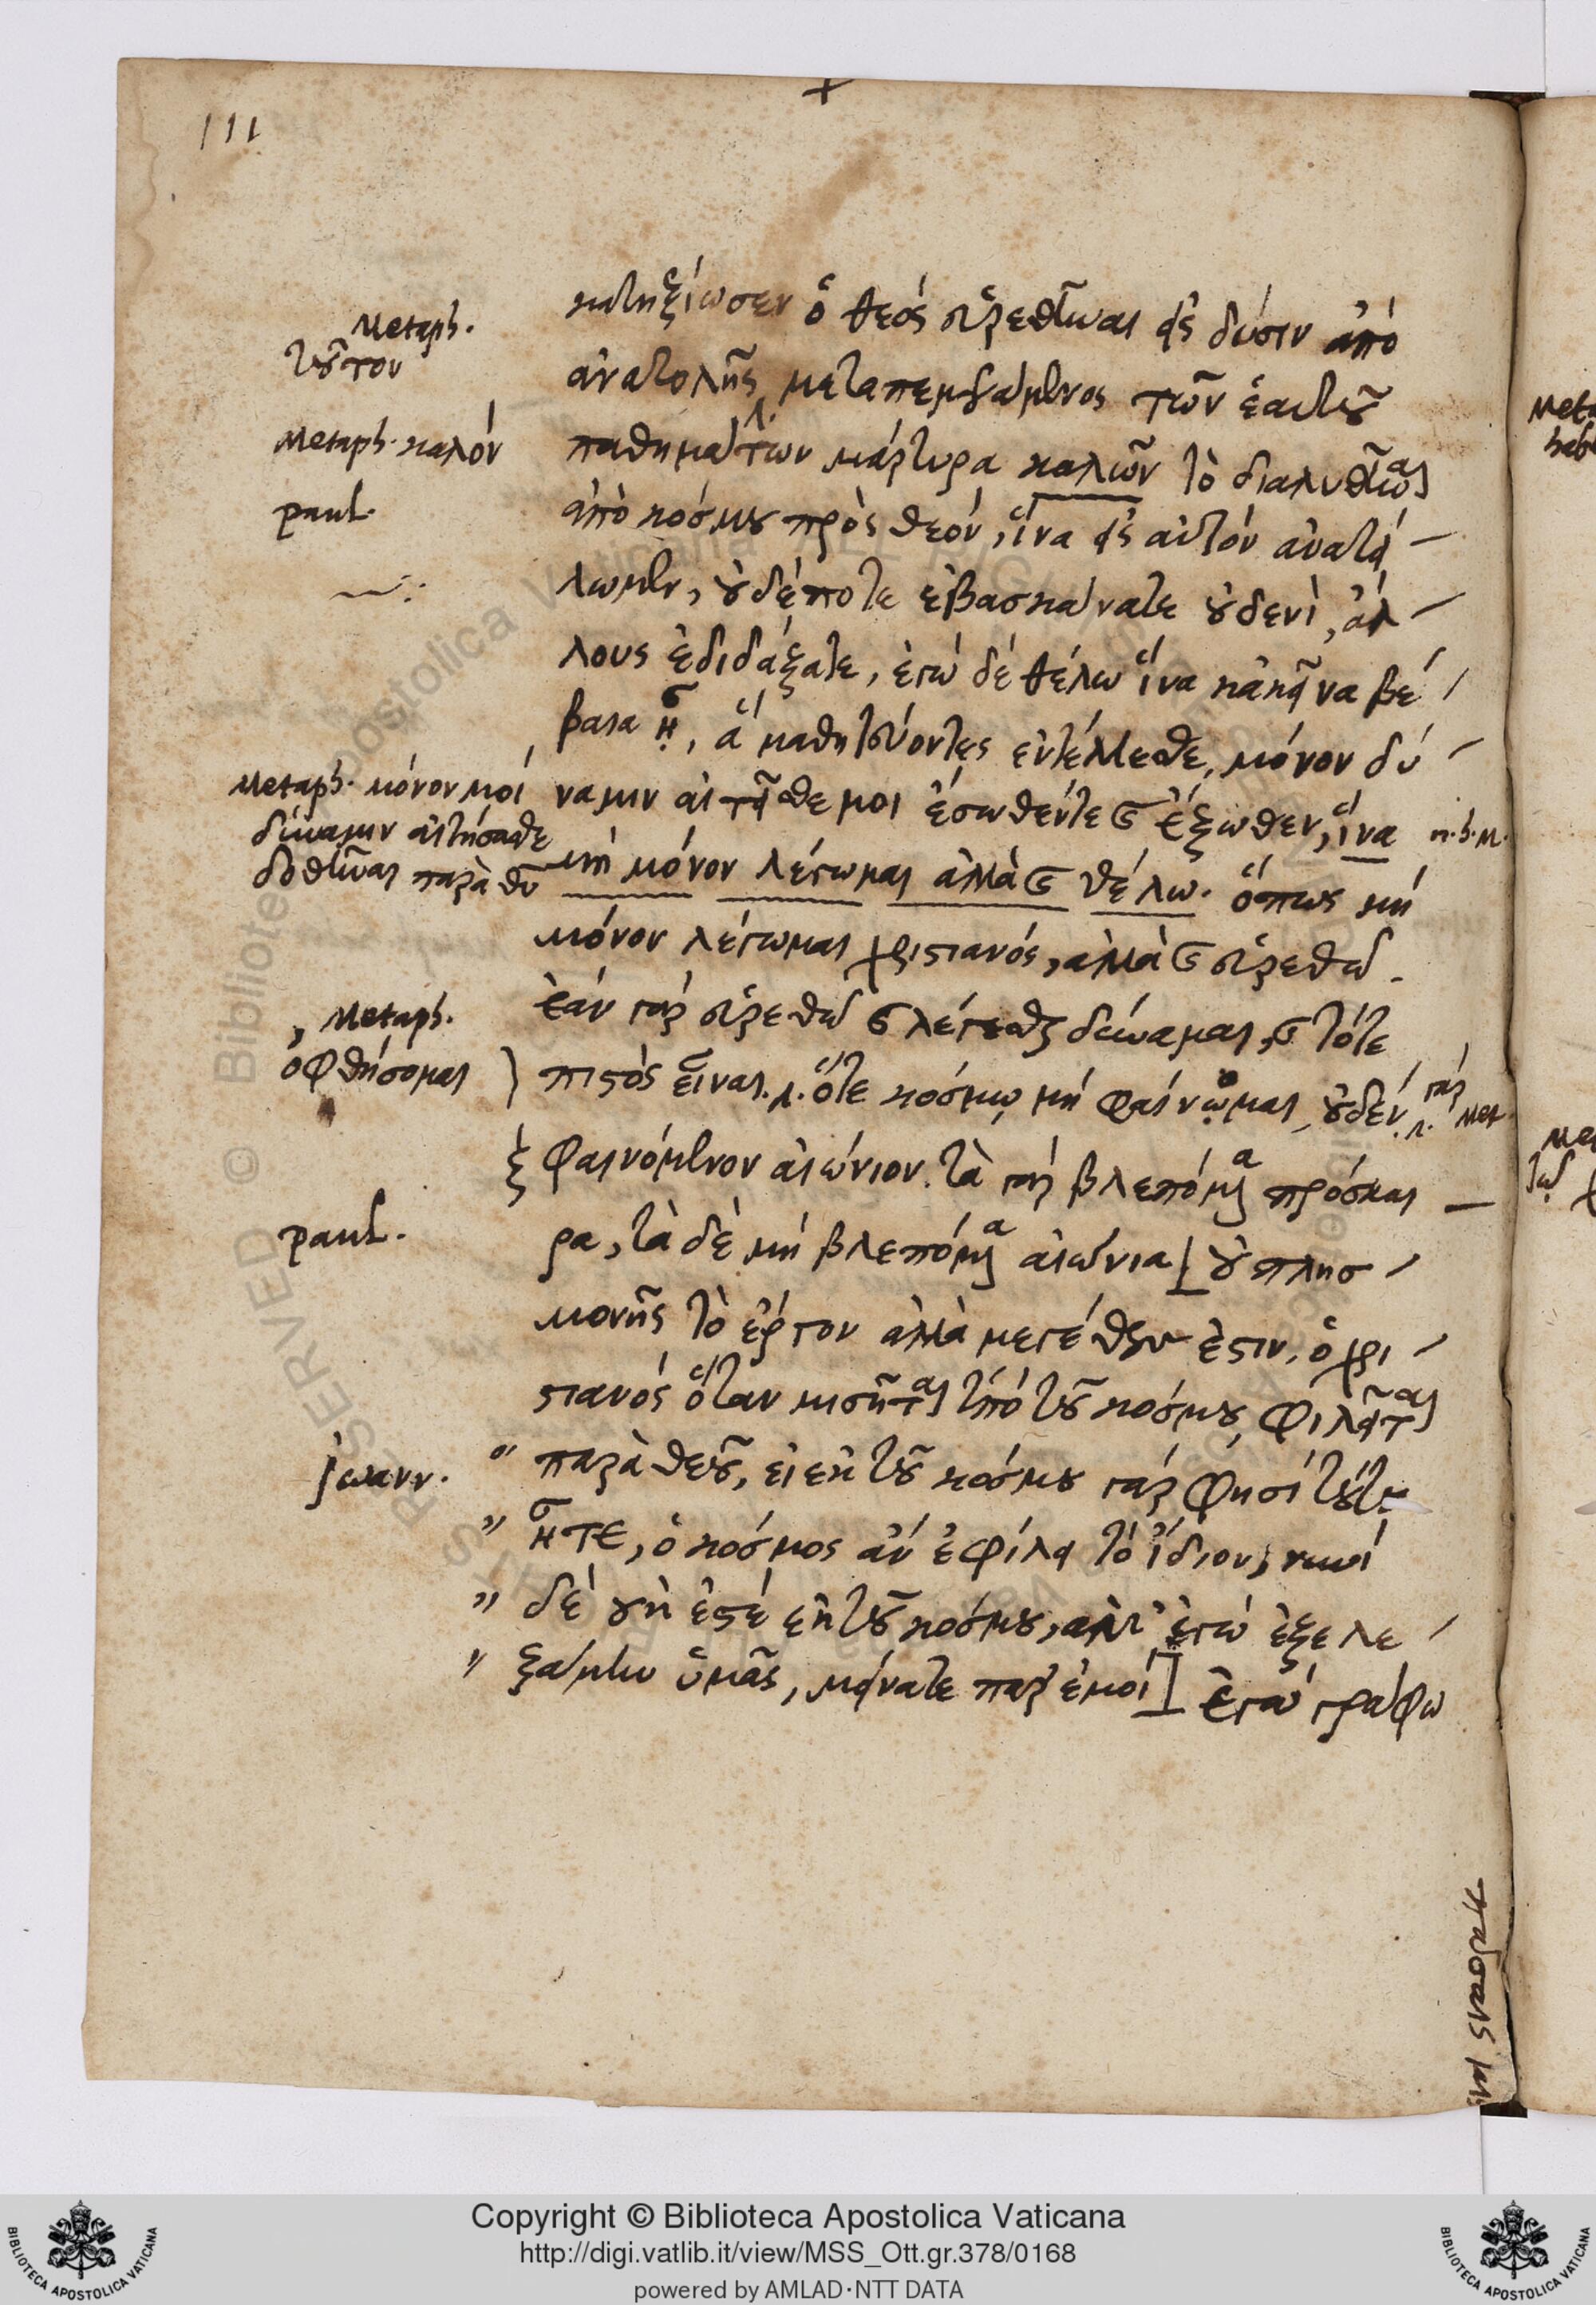 111
κατηξίωσεν ὁ θεός εὑρεθῆναι εἰς δύσιν ἀπὸ
Metaph.
τοῦτον
ἀνατολῆς μεταπεμψάμενος τῶν ἑαυτοῦ
Metaph. καλόν
παθημάτων μάρτυρα καλῶν τὸ διαλυθῆναι
paul.
ἀπὸ κόσμου πρὸς θεόν, ἵνα εἰς αὐτόν ἀνατεί
λωμεν, οὐδέποτε ἐβασκάνατε οὐδενί, ἀλ
λους ἐδιδάξατε, ἐγώ δέ θέλω ἵνα κἀκεῖνα βέ
βαια ᾖ, ἅ μαθητεύοντες ἐντέλλεσθε, μόνον δύ
Metaph. μόνον μοί
δύναμιν αἰτήσασθε
δοθῆναι παρὰ θῦ
ναμιν αἰτεῖσθε μοι ἔσωθέντε καὶ ἔξωθεν, ἵνα
n.h.M.
μή μόνον λέγωμαι ἀλλὰ καὶ θέλω. ὅπως μή
μόνον λέγωμαι χριστιανός, ἀλλὰ καὶ εὑρεθῶ.
ἐάν γάρ εὑρεθῶ καὶ λέγεσθαι δύναμαι, καὶ τότε
Metaph.
ὀφθήσομαι
πιστός εἶναι. ὅτε κόσμῳ μή φαίνωμαι, οὐδέν γάρ
Met.
φαινόμενον αἰώνιον. τὰ γάρ βλεπόμενα πρόσκαι
paul.
ρα, τὰ δὲ μή βλεπόμενα αἰώνια] οὐ πλησ
μονῆς τὸ ἔργον ἀλλὰ μεγέθους ἐστιν, ὁ χρι
στιανός ὅταν μισῆται ὑπό τοῦ κόσμου, φιλεῖται
Joann.
" παρὰ θεοῦ, εἰ ἐκ τοῦ κόσμου γάρ φησί τούτου
" ἦτε, ὁ κόσμος ἄν ἐφίλει τό ἴδιον, νυνί
" δέ οὐκ ἐστέ ἐκ τοῦ κόσμου, ἀλλ' ἐγώ ἐξελε
" ξάμην ὑμᾶς, μείνατε παρ' ἐμοί] Ἐγώ γράφω
Copyright © Biblioteca Apostolica Vaticana
http://digi.vatlib.it/view/MSS_Ott.gr.378/0168
powered by AMLAD·NTT DATA